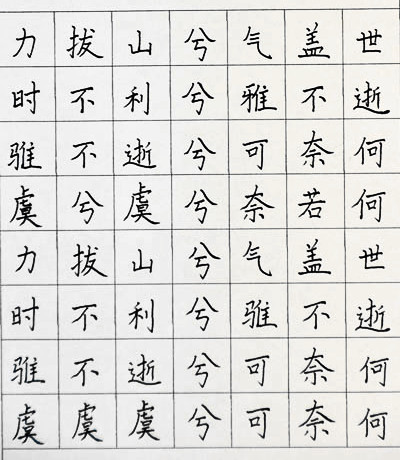 力拔山兮气盖世
时不利兮雅不逝
骓不逝兮可奈何
虞兮虞兮奈若何
力拔山兮气盖世
时不利兮骓不逝
骓不逝兮可奈何
虞虞虞兮可奈何